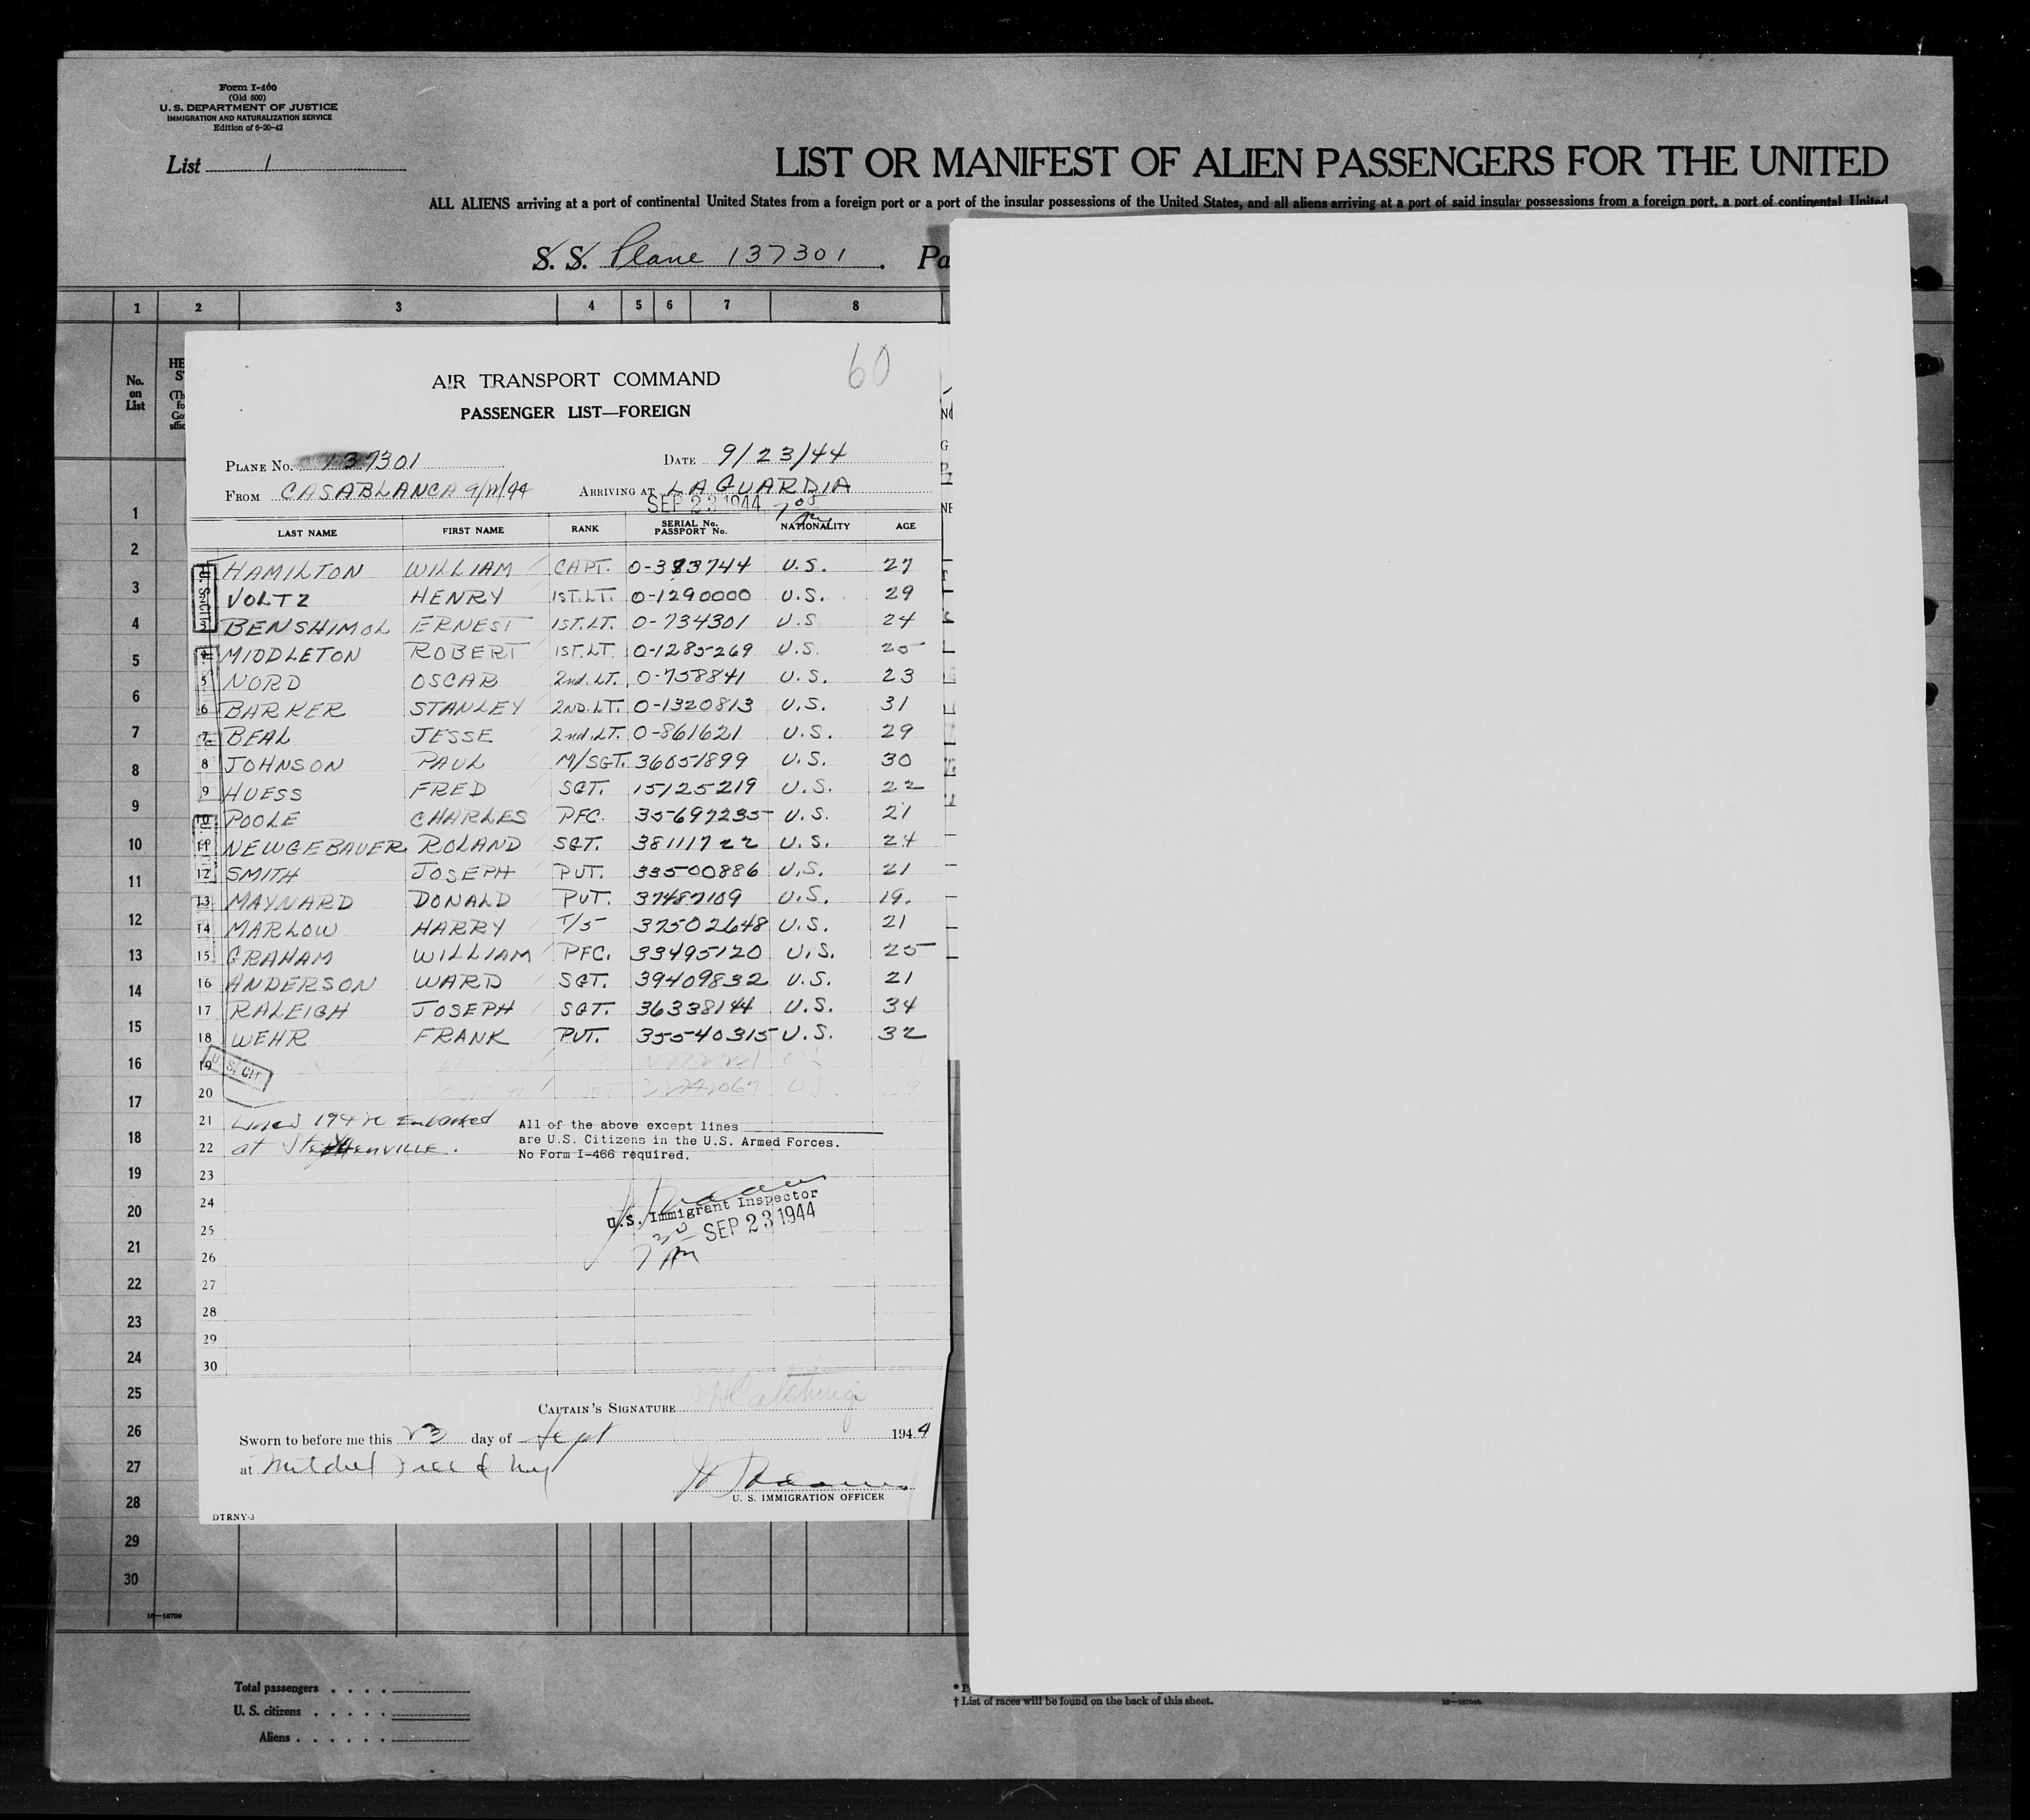 Form I-460
(Old 500)
U. S. DEPARTMENT OF JUSTICE
IMMIGRATION AND NATURALIZATION SERVICE
Edition of 6-20-42
List 1
LIST OR MANIFEST OF ALIEN PASSENGERS FOR THE UNITED
ALL ALIENS arriving at a port of continental United States from a foreign port or a port of the insular possessions of the United States, and all aliens arriving at a port of said insular possessions from a foreign port, a port of continental United
S. S. Plane 137301. Pa
1 2 3 4 5 6 7 8
No. on List
60
AIR TRANSPORT COMMAND
PASSENGER LIST—FOREIGN
PLANE No. 137301 DATE 9/23/44
FROM CASABLANCA ARRIVING AT LAGUARDIA
SEP 23 1944
LAST NAME FIRST NAME RANK SERIAL No. PASSPORT No. NATIONALITY AGE
HAMILTON WILLIAM CAPT. U.S. 27
VOLTZ HENRY 1ST.LT. 0-1290000 U.S. 29
3 BENSHIMOL ERNEST 1ST.LT. 0-734301 U.S 24
4 MIDDLETON ROBERT 1ST.LT. 0-1285269 U.S. 25
5 NORD OSCAR 2nd.LT. 0-758841 U.S. 23
6 BARKER STANLEY 2ND.LT. 0-1320813 U.S. 31
7 BEAL JESSE 2nd.LT. 0-861621 U.S. 29
8 JOHNSON PAUL M/SGT. 36051899 U.S. 30
9 HUESS FRED SGT. 15125219 U.S. 22
10 POOLE CHARLES PFC. 35697235 U.S. 21
11 NEWGEBAUER ROLAND SGT. 38111722 U.S. 24
12 SMITH JOSEPH PVT. 33500886 U.S. 21
13 MAYNARD DONALD PVT. 37487109 U.S. 19.
14 MARLOW HARRY T/5 37502648 U.S. 21
15 GRAHAM WILLIAM PFC. 33495120 U.S. 25
16 ANDERSON WARD SGT. 39409832 U.S. 21
17 RALEIGH JOSEPH SGT. 36338144 U.S. 34
18 WEHR FRANK PVT. 35540315 U.S. 32
19
U.S. CIT
20
21 Lines Embarked
22 at Stephenville.
All of the above except lines
are U.S. Citizens in the U.S. Armed Forces.
No Form I-466 required.
23
24
U.S. Immigrant Inspector
25
SEP 23 1944
26
7 AM
27
28
29
30
CAPTAIN'S SIGNATURE
Sworn to before me this 23 day of Sept 1944
at Mitchel Field NY
U. S. IMMIGRATION OFFICER
DTRNY-3
1
2
3
4
5
6
7
8
9
10
11
12
13
14
15
16
17
18
19
20
21
22
23
24
25
26
27
28
29
30
16—18709
Total passengers . . . .
U. S. citizens . . . . .
Aliens . . . . . .
† List of races will be found on the back of this sheet.